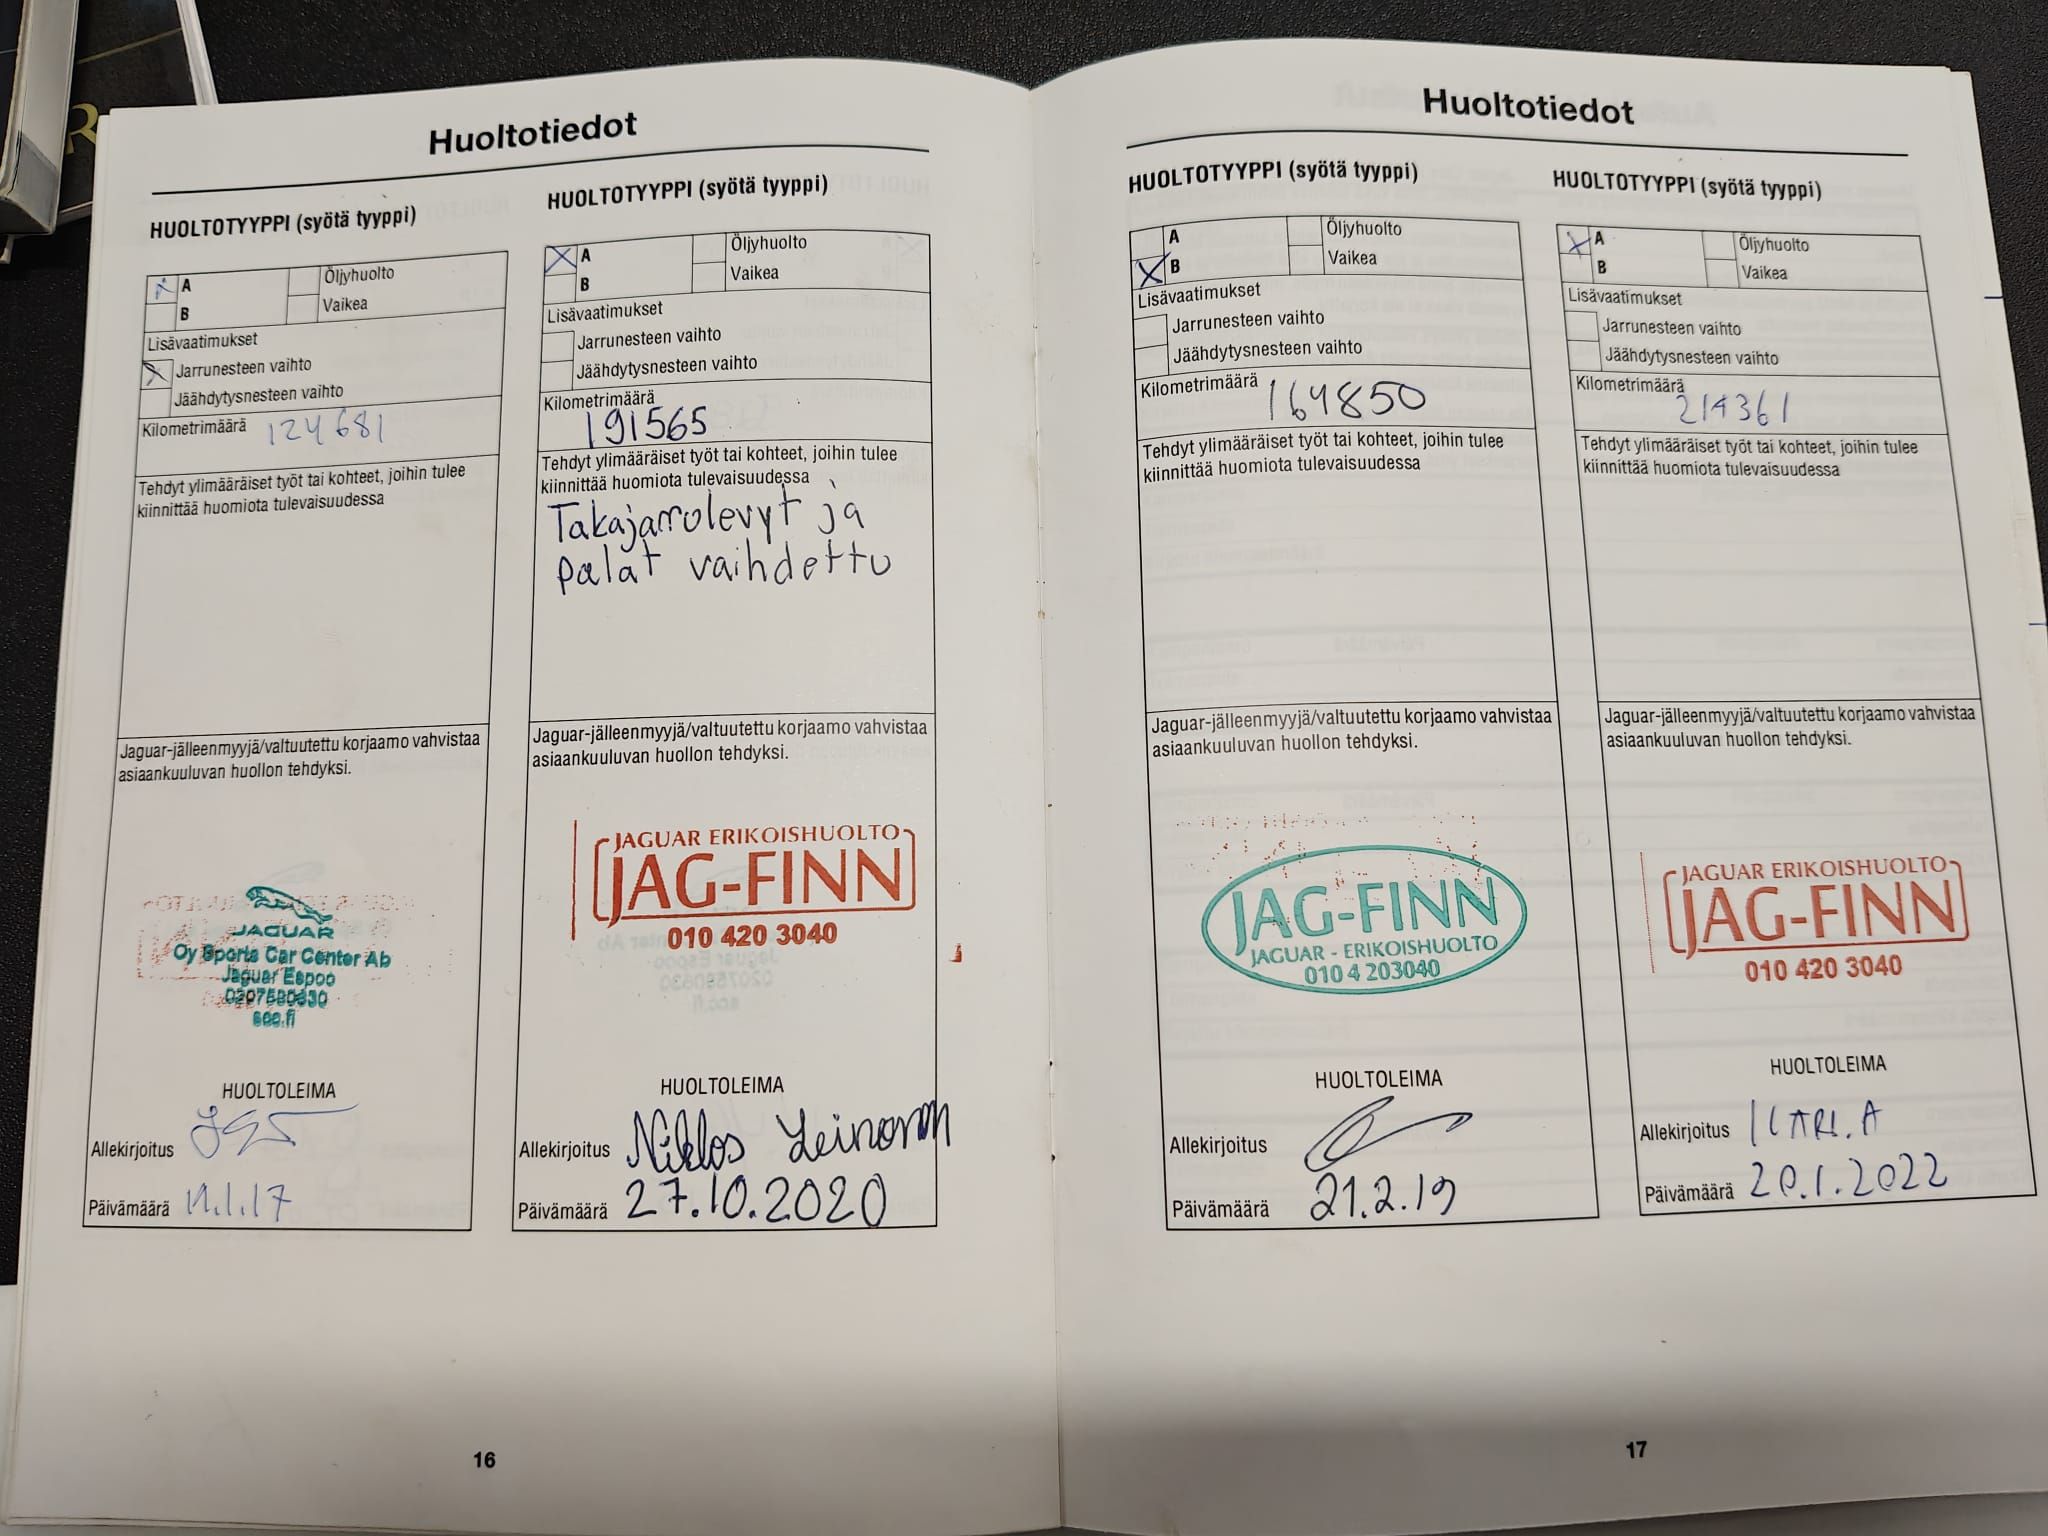 R
Huoltotiedot
HUOLTOTYYPPI (syötä tyyppi)
A
Öljyhuolto
B
Vaikea
Lisävaatimukset
Jarrunesteen vaihto
Jäähdytysnesteen vaihto
Kilometrimäärä 124681
Tehdyt ylimääräiset työt tai kohteet, joihin tulee
kiinnittää huomiota tulevaisuudessa
Jaguar-jälleenmyyjä/valtuutettu korjaamo vahvistaa
asiaankuuluvan huollon tehdyksi.
JAGUAR
Oy Sports Car Center Ab
Jaguar Espoo
0207530830
scc.fi
HUOLTOLEIMA
Allekirjoitus
Päivämäärä
HUOLTOTYYPPI (syötä tyyppi)
A
Öljyhuolto
B
Vaikea
Lisävaatimukset
Jarrunesteen vaihto
Jäähdytysnesteen vaihto
Kilometrimäärä
191565
Tehdyt ylimääräiset työt tai kohteet, joihin tulee
kiinnittää huomiota tulevaisuudessa
Takajarrulevyt ja
palat vaihdettu
Jaguar-jälleenmyyjä/valtuutettu korjaamo vahvistaa
asiaankuuluvan huollon tehdyksi.
JAGUAR ERIKOISHUOLTO
JAG-FINN
010 420 3040
HUOLTOLEIMA
Allekirjoitus Niklos
Päivämäärä 27.10.2020
16
Huoltotiedot
HUOLTOTYYPPI (syötä tyyppi)
A
Öljyhuolto
B
Vaikea
Lisävaatimukset
Jarrunesteen vaihto
Jäähdytysnesteen vaihto
Kilometrimäärä 164850
Tehdyt ylimääräiset työt tai kohteet, joihin tulee
kiinnittää huomiota tulevaisuudessa
Jaguar-jälleenmyyjä/valtuutettu korjaamo vahvistaa
asiaankuuluvan huollon tehdyksi.
JAG-FINN
JAGUAR - ERIKOISHUOLTO
010 4 203040
HUOLTOLEIMA
Allekirjoitus
Päivämäärä 21.2.19
HUOLTOTYYPPI (syötä tyyppi)
A
Öljyhuolto
B
Vaikea
Lisävaatimukset
Jarrunesteen vaihto
Jäähdytysnesteen vaihto
Kilometrimäärä
214361
Tehdyt ylimääräiset työt tai kohteet, joihin tulee
kiinnittää huomiota tulevaisuudessa
Jaguar-jälleenmyyjä/valtuutettu korjaamo vahvistaa
asiaankuuluvan huollon tehdyksi.
JAGUAR ERIKOISHUOLTO
JAG-FINN
010 420 3040
HUOLTOLEIMA
Allekirjoitus KARI.A
Päivämäärä 20.1.2022
17